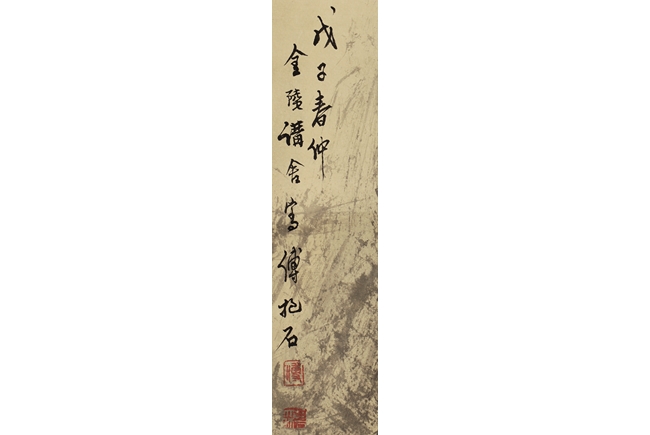 戊子春仲
金陵講舍寫傅抱石